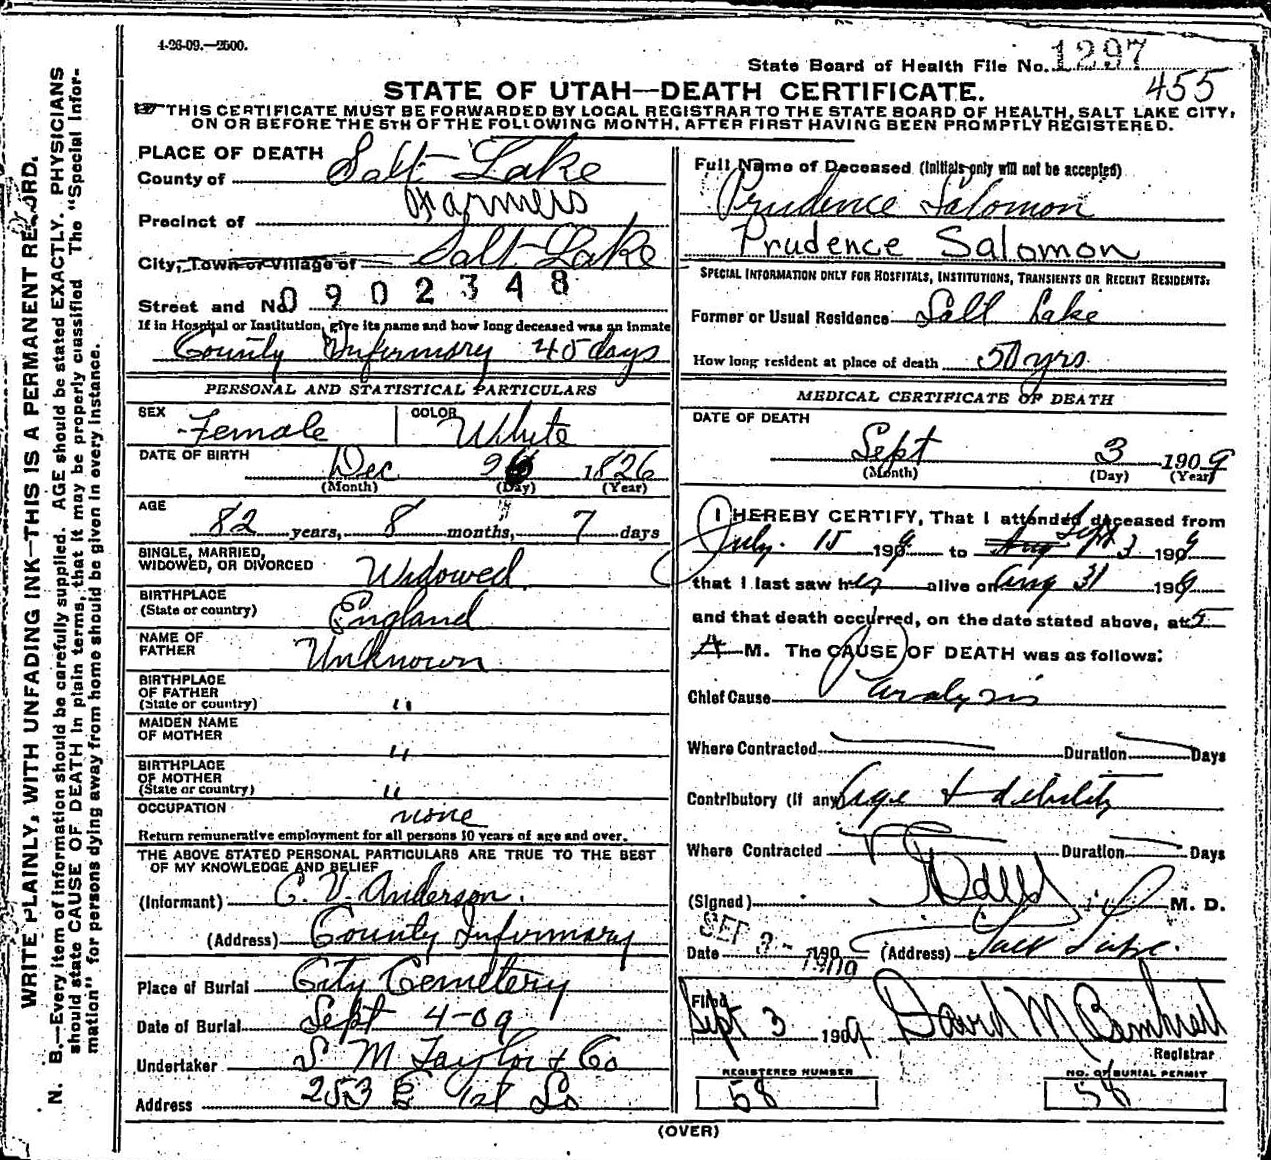 4-26-09.—2500.
State Board of Health File No. 1297
455
STATE OF UTAH—DEATH CERTIFICATE.
THIS CERTIFICATE MUST BE FORWARDED BY LOCAL REGISTRAR TO THE STATE BOARD OF HEALTH, SALT LAKE CITY,
ON OR BEFORE THE 5TH OF THE FOLLOWING MONTH, AFTER FIRST HAVING BEEN PROMPTLY REGISTERED.
WRITE PLAINLY, WITH UNFADING INK—THIS IS A PERMANENT RECORD.
N. B.—Every item of information should be carefully supplied. AGE should be stated EXACTLY. PHYSICIANS
should state CAUSE OF DEATH in plain terms, that it may be properly classified The "Special Infor-
mation" for persons dying away from home should be given in every instance.
PLACE OF DEATH
County of Salt Lake
Precinct of Farmers
City, Town or Village of Salt Lake
Street and No. 0902348
If in Hospital or Institution, give its name and how long deceased was an inmate
County Infirmary 45 days
PERSONAL AND STATISTICAL PARTICULARS
SEX Female COLOR White
DATE OF BIRTH
Dec 26 1826
(Month) (Day) (Year)
AGE
82 years, 8 months, 7 days
SINGLE, MARRIED,
WIDOWED, OR DIVORCED Widowed
BIRTHPLACE
(State or country) England
NAME OF
FATHER Unknown
BIRTHPLACE
OF FATHER
(State or country) "
MAIDEN NAME
OF MOTHER "
BIRTHPLACE
OF MOTHER
(State or country) "
OCCUPATION none
Return remunerative employment for all persons 10 years of age and over.
THE ABOVE STATED PERSONAL PARTICULARS ARE TRUE TO THE BEST
OF MY KNOWLEDGE AND BELIEF
(Informant) C. V. Anderson.
(Address) County Infirmary
Place of Burial City Cemetery
Date of Burial Sept 4-09
Undertaker S M Taylor & Co
Address 253 E 1st So
Full Name of Deceased (Initials only will not be accepted)
Prudence Salomon
Prudence Salomon
SPECIAL INFORMATION ONLY FOR HOSPITALS, INSTITUTIONS, TRANSIENTS OR RECENT RESIDENTS:
Former or Usual Residence Salt Lake
How long resident at place of death 50 yrs
MEDICAL CERTIFICATE OF DEATH
DATE OF DEATH
Sept 3 1909
(Month) (Day) (Year)
I HEREBY CERTIFY, That I attended deceased from
July. 15 1909 to Aug Sept 3 1909
that I last saw her alive on Aug 31 1909
and that death occurred, on the date stated above, at 5
A M. The CAUSE OF DEATH was as follows:
Chief Cause Paralysis
Where Contracted Duration Days
Contributory (if any) Age & debility
Where Contracted Duration Days
(Signed) M. D.
Date SEP 3 - 1909 190 (Address) Salt Lake.
Filed
Sept 3 1909 David M
Registrar
REGISTERED NUMBER
58
NO. OF BURIAL PERMIT
58
(OVER)